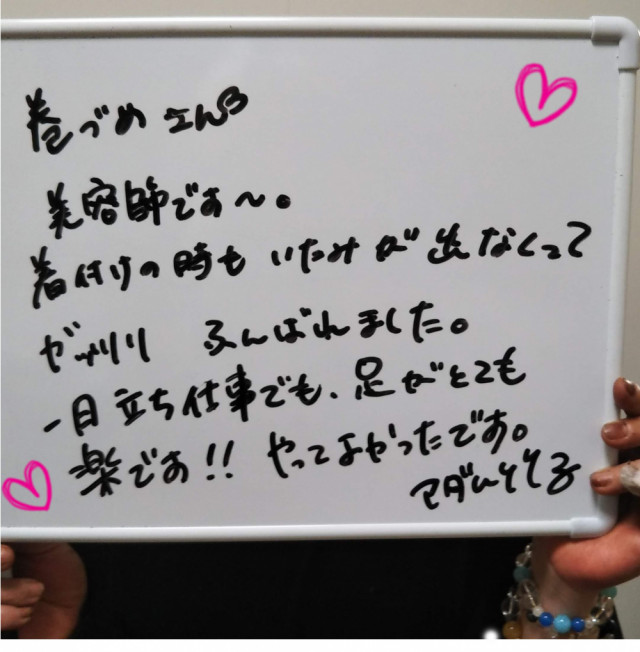 巻づめさん
美容師です〜。
着付けの時も いたみが 出なくって
ガッツリ ふんばれました。
一日立ち仕事でも、足がとても
楽です!! やってよかったです。
マダム